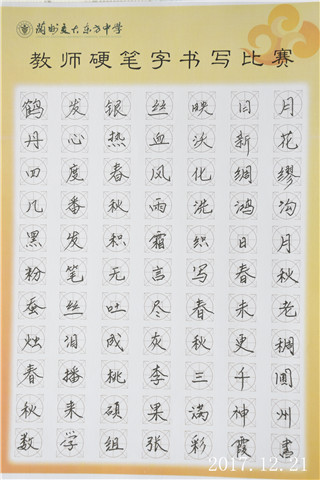 兰州交大东方中学
教师硬笔字书写比赛
鹤发银丝映日月
丹心热血沃新花
四度春风化绸缪
几番秋雨洗鸿沟
黑发积霜织日月
粉笔无言写春秋
蚕丝吐尽春未老
烛泪成灰秋更稠
春播桃李三千圃
秋来硕果满神州
数学组张彩霞书
2017.12.21